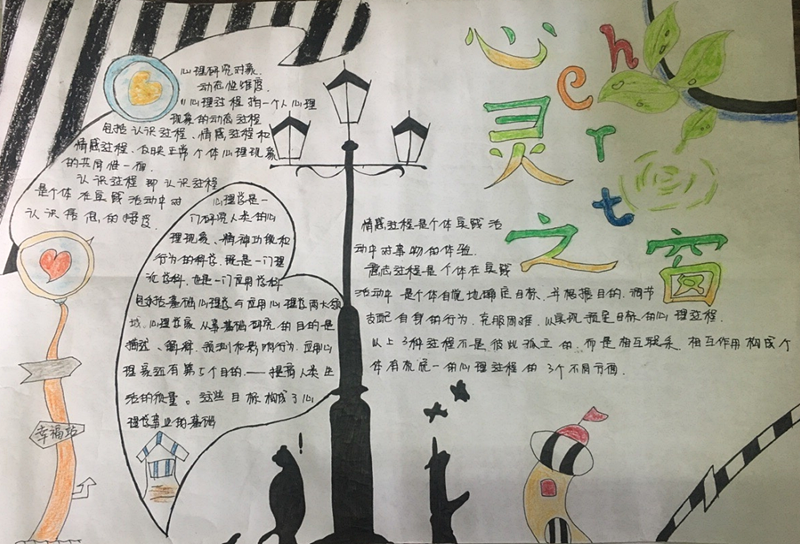 心灵之窗
heart
心理研究对象
动态性维度
心理过程指一个人心理
现象的动态过程
包括认识过程、情感过程和
情感过程、反映正常个体心理现象
的共同性一面
认识过程即认识过程
是个体在实践活动中对
认识信息的接受
心理学是一
门研究人类的心
理现象、精神功能和
行为的科学、既是一门理
论学科、也是一门应用学科
包括基础心理学与应用心理学两大领
域、心理学家从事基础研究的目的是
描述、解释、预测和影响行为、应用心
理学家还有第5个目的——提高人类生
活的质量。这些目标构成了心
理学事业的基础
情感过程是个体实践活
动中对事物的体验
意志过程是个体在实践
活动中是个体自觉地确定目标、并根据目的、调节
支配自身的行为、克服困难、以实现预定目标的心理过程
以上3种过程不是彼此孤立的、而是相互联系、相互作用构成个
体有机统一的心理过程的3个不同方面
幸福站